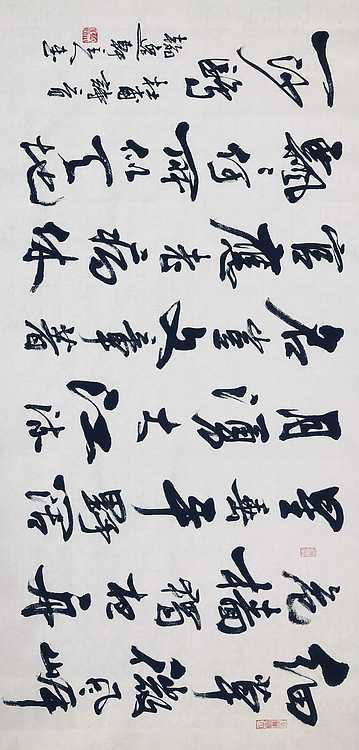 细草微風岸
危檣獨夜舟
星垂平野濶
月湧大江流
名豈文章著
官應老病休
飄〻何所似天地
一沙鷗
杜甫詩